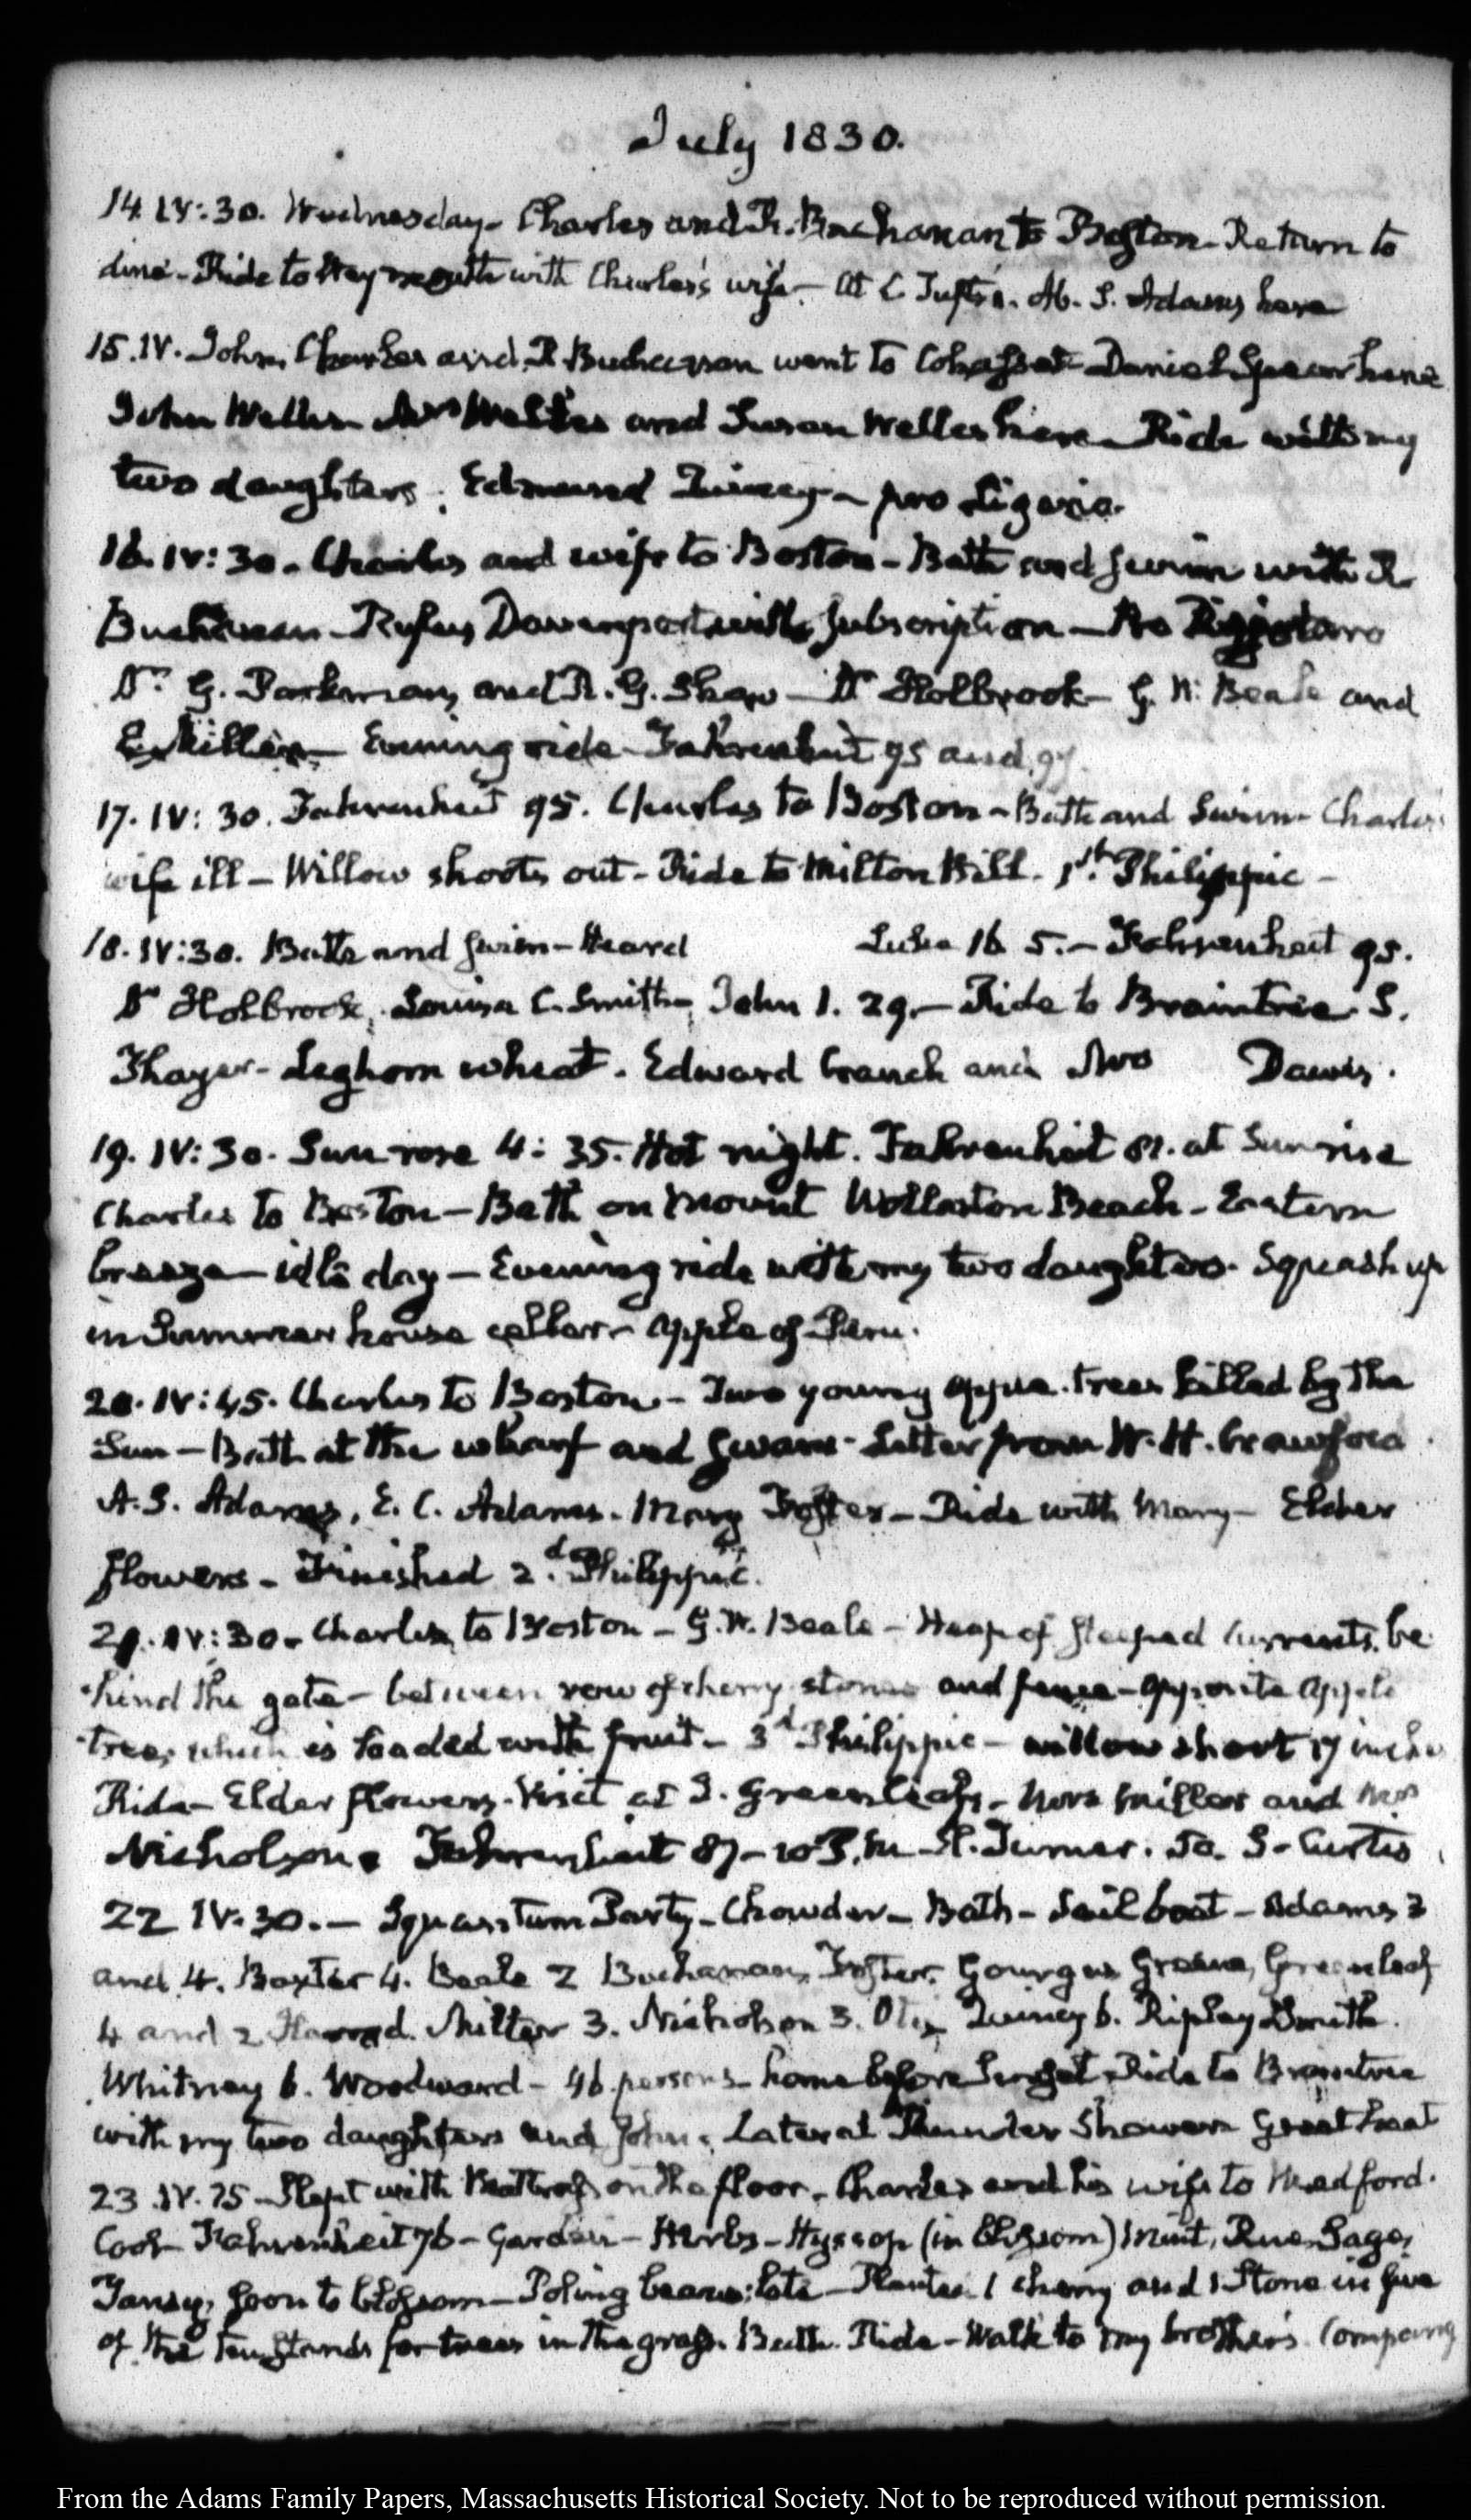 July 1830.
14. IV:30. Wednesday- Charles and R. Buchanan to Boston- Return to
dine- Ride to Weymouth with Charles's wife- At C. Tufts's. Ab. S. Adams here
15. IV. John, Charles and R Buchanan went to Cohasset- Daniel Spear here
John Welles Mrs Welles and Susan Welles here- Ride with my
two daughters. Edmund Quincy- pro Ligario.
16. IV:30- Charles and wife to Boston- Bath and swim with R
Buchanan- Rufus Davenport with subscription- Pro
Dr. G. Parkman, and R. G. Shaw- Dr Holbrook- G. W. Beale and
E. Miller- Evening ride- Fahrenheit 95 and 97
17. IV:30. Fahrenheit 95. Charles to Boston- Bath and Swim- Charles's
wife ill- Willow shoots out- Ride to Milton Hill. 1st. Philippic-
18. IV:30. Bath and swim- Heard Luke 16 5.- Fahrenheit 95.
Dr Holbrook, Louisa C. Smith- John 1. 29.- Ride to Braintree. S.
Thayer- Leghorn wheat. Edward Cranch and Mrs Dawes.
19. IV:30. Sun rose 4:35. Hot night. Fahrenheit 81. at Sunrise
Charles to Boston- Bath on Mount Wollaston Beach- Eastern
breeze- idle day- Evening ride with my two daughters. Squash up
in Summer house cellar- Apple of Peru.
20. IV:45. Charles to Boston- Two young apple trees killed by the
Sun- Bath at the wharf and swam- Letter from W. H. Crawford.
A. S. Adams, E. C. Adams. Mary Foster- Ride with Mary- Elder
flowers- Finished 2.d Philippic.
21. IV:30- Charles to Boston- G. W. Beale- Heap of steeped Currants, be
hind the gate- between row of cherry stones and fence- opposite apple
tree, which is loaded with fruit- 3d Philippic- willow shoot 17 inches
Ride- Elder flowers- Visit at T. Greenleaf's- Mrs Miller and Mrs
Nicholson. Fahrenheit 87- 10 P.M. H. Turner. To. S. Curtis
22 IV.30.- Squantum Party- Chowder- Bath- Sail boat- Adams 3
and 4. Baxter 4. Beale 2 Buchanan, Foster, Gourgas Greene, Greenleaf
4 and 2 Harrod. Miller 3. Nicholson 3. Otis Quincy 6. Ripley Smith.
Whitney 6. Woodward- 46 persons- home before sunset- Ride to Braintree
with my two daughters and John. Lateral Thunder Shower Great heat
23. IV.15- Slept with Mattress on the floor. Charles and his wife to Medford.
Cool- Fahrenheit 76- Garden- Herbs- Hyssop (in blossom) Mint, Rue Sage,
Tansy, soon to blossom- Poling beans; late- Planted 1 cherry and 1 Stone in five
of the ten stands for trees in the grass. Bath. Ride- Walk to my brother's. Company
From the Adams Family Papers, Massachusetts Historical Society. Not to be reproduced without permission.